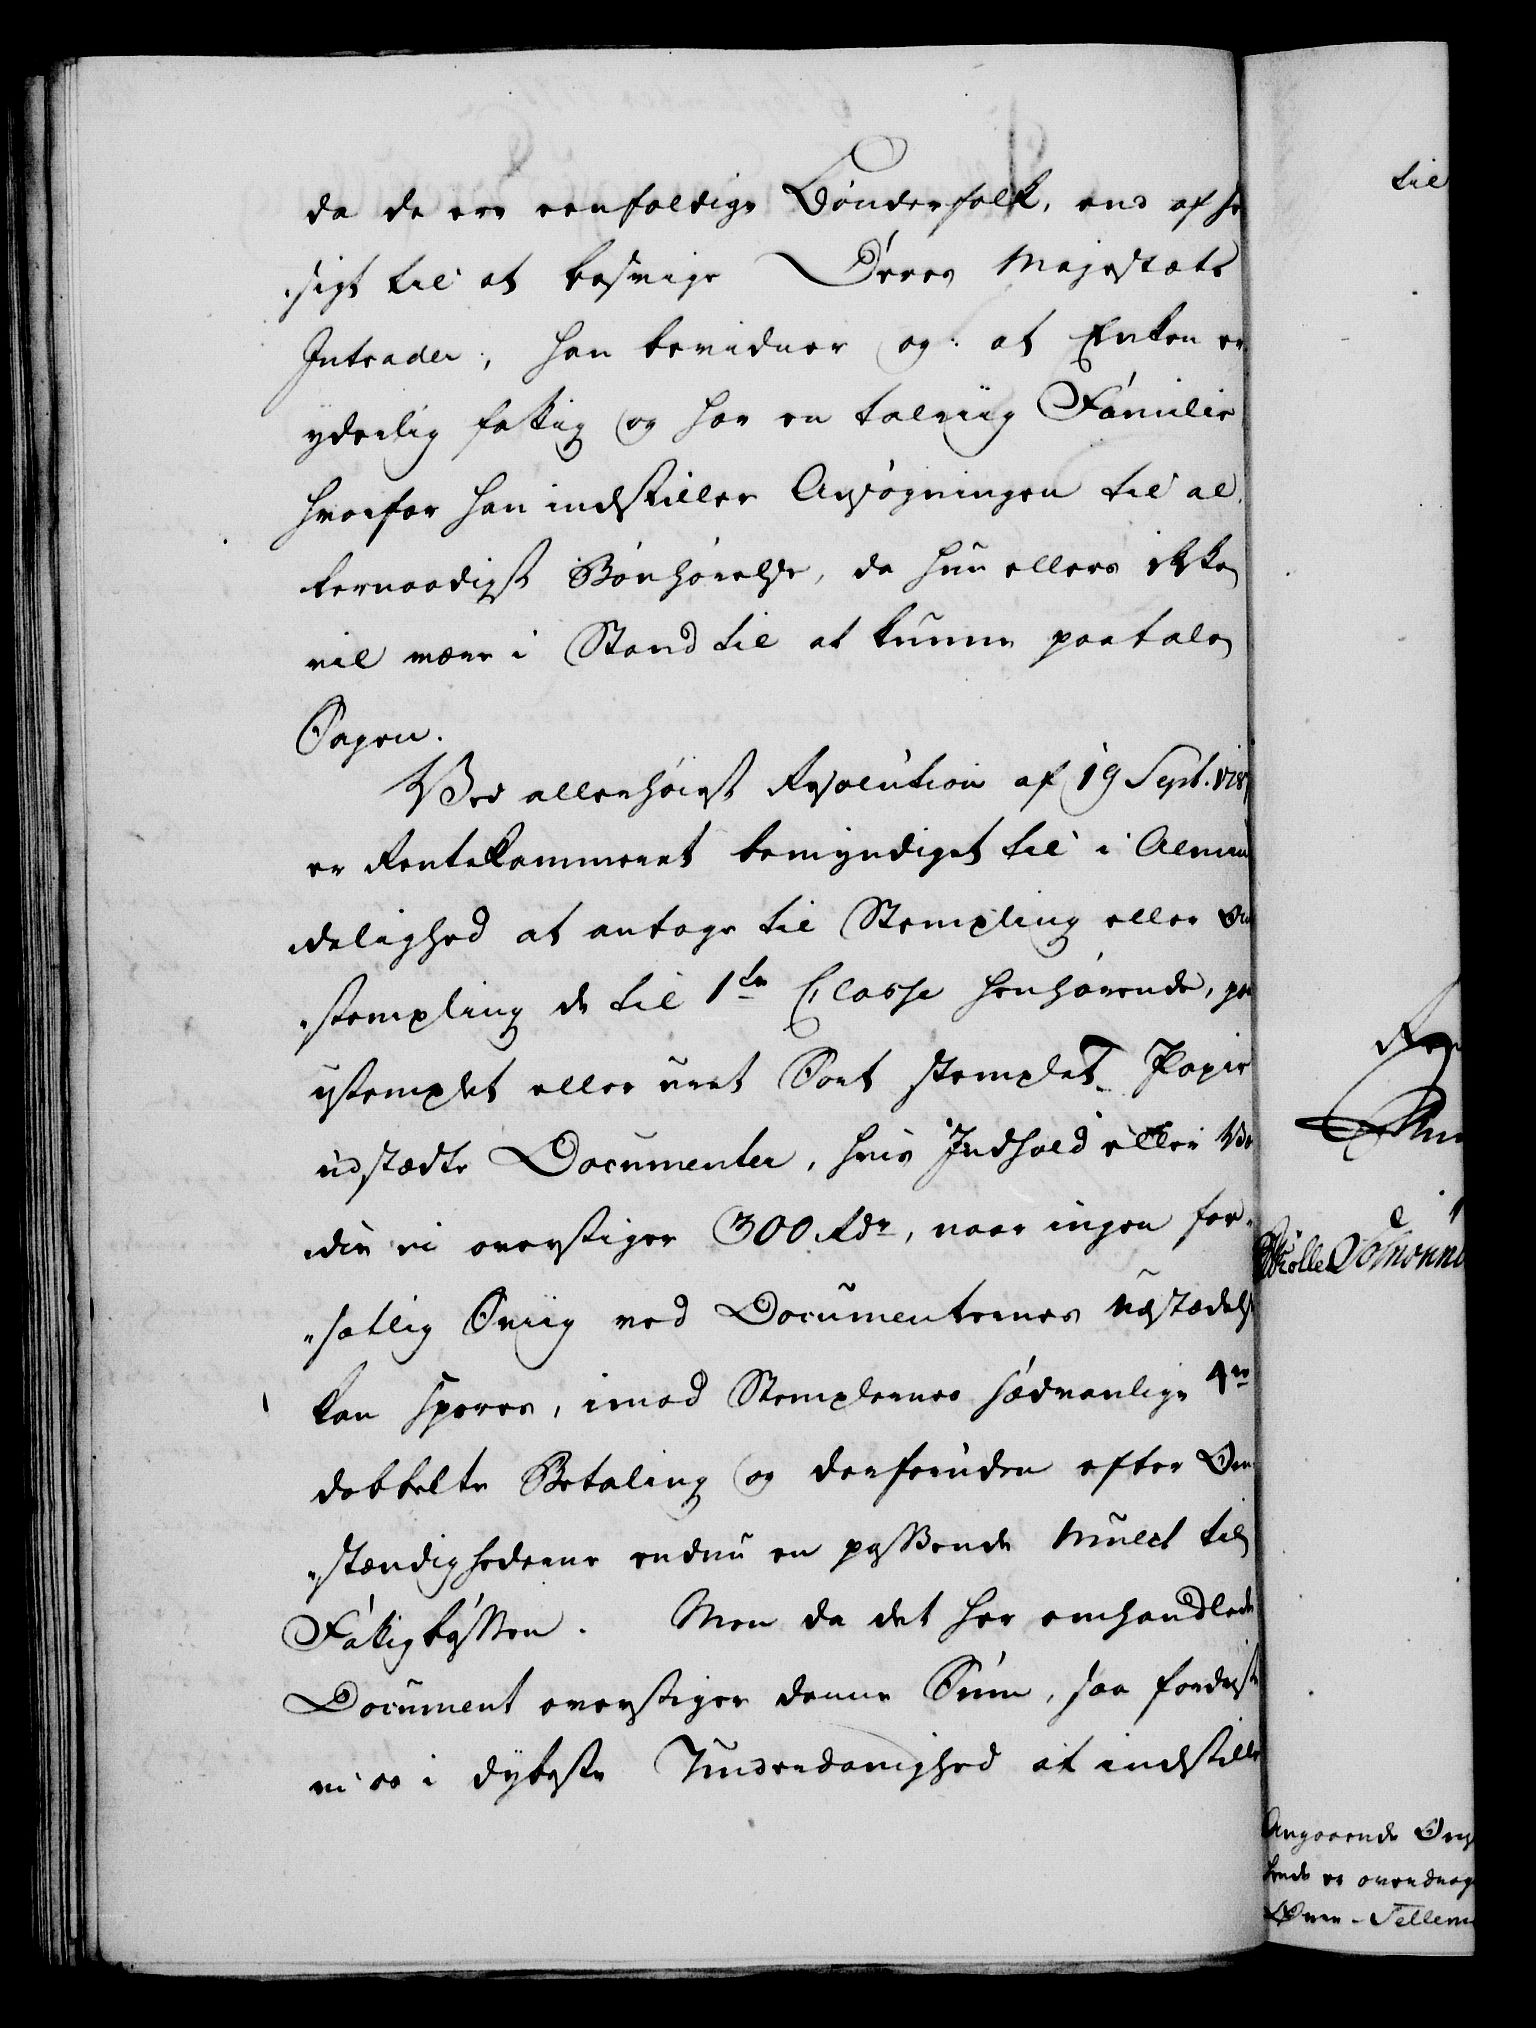 da de ere eenfoldige Bønderfolk, end af He
sigt til at besvige Deres Majestæts
Intrader, han bevidner og: at Enken er
yderlig fattig og har en talriig Familie
hvorfor han indstiller Ansøgningen til al
lernaadigst Bønhørelse, da hun ellers ikke
vil være i Stand til at kunne paatale
Sagen.
Ved allerhøiest Resolution af 19 Sept. 178
er Rentekammeret bemyndiget til i Almin
delighed at antage til Stempling eller Om
stempling de til 1te Classe henhørende, paa
ustemplet eller uret Sort stemplet Papir
udstædte Documenter, hvis Indhold eller Vær
die ei overstiger 300 Rdr, naar ingen for-
sætlig Sviig ved Documenternes Udstædelse
kan spores, imod Stemplernes sædvanlige 4re
dobbelte Betaling og desforuden efter Om
stændighederne endnu en passende Mulct til
Fattigbøssen. Men da det her omhandlede
Document overstiger denne Sum, saa fordrist
vi os i dybeste Underdanighed at indstille
til
Angaaende Ons
hende er overdrag
Øvre-Tellem